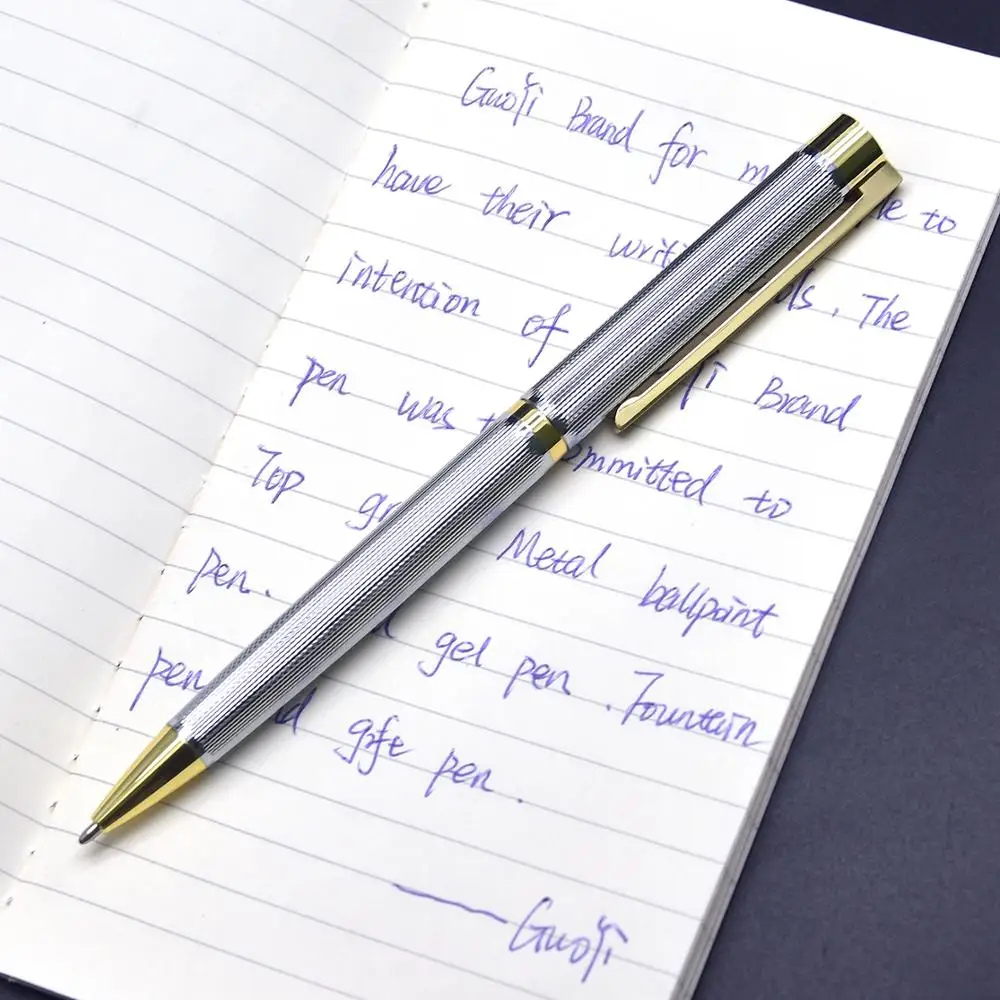 GuoJi Brand for
have their to
intention of . The
pen was Brand
Top committed to
pen. Metal ballpoint
pen gel pen . Fountain
gife pen .
— GuoJi